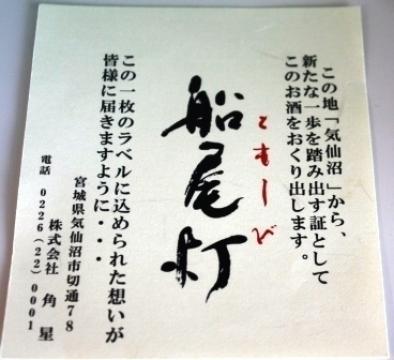 この地「気仙沼」から、
新たな一歩を踏み出す証として
このお酒をおくり出します。
ともしび
船尾灯
この一枚のラベルに込められた想いが
皆様に届きますように・・・
宮城県気仙沼市切通78
株式会社 角星
電話 0226(22)0001